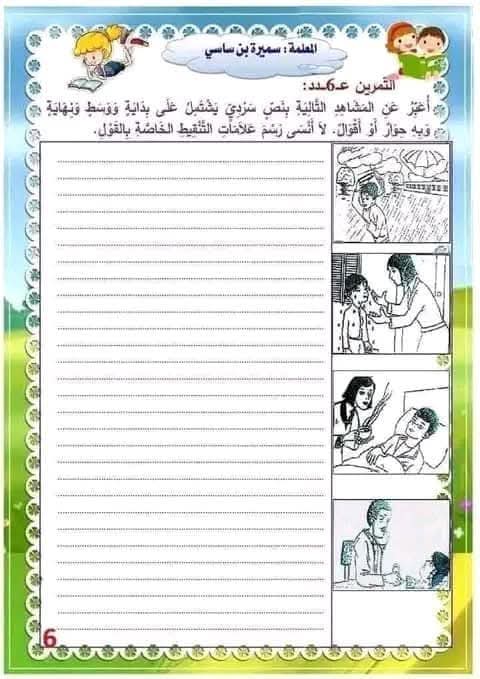 المعلمة : سميرة بن ساسي
التمرين عـ6ـدد:
أُعَبِّرُ عَنِ المَشَاهِدِ التَّالِيَةِ بِنَصٍّ سَرْدِيٍّ يَشْتَمِلُ عَلَى بِدَايَةٍ وَوَسَطٍ وَنِهَايَةٍ
وَبِهِ حِوَارٌ أَوْ أَقْوَالٌ. لاَ أَنْسَى رَسْمَ عَلاَمَاتِ التَّنْقِيطِ الخَاصَّةِ بِالقَوْلِ.
6